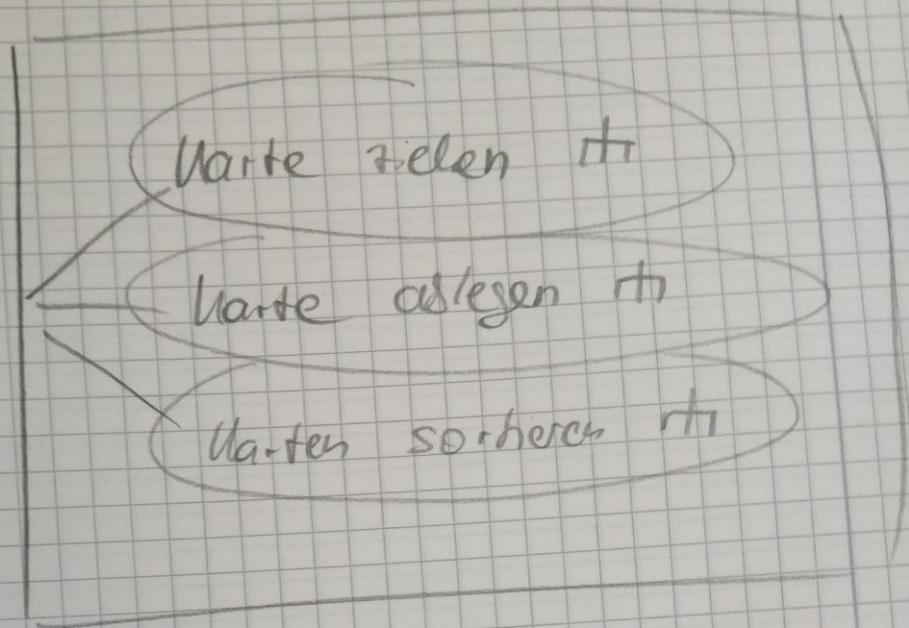 Karte zielen
Karte ablegen
Karten sortieren